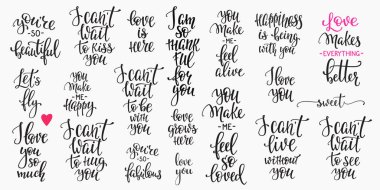 you're
~so~
beautiful
Let's
fly
I love
you
so
much
I can't
wait
to
kiss
you
you
Make
~ME~
Happy
I can't
wait
to
hug
you
love
is
here
I can't
wait
to be
with
you
you're
~so~
fabulous
I am
so
thank
ful
for
you
love
grows
here
love
you
you
Make
me
feel
alive
you
Make
~ME~
feel
so
loved
Happiness
is~being~
with you
I love
you
I can't
live
without
you
Love
Makes
EVERYTHING
better
sweet
I can't
wait
to see
you